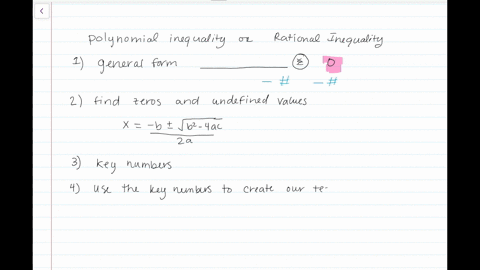 polynomial inequality or Rational Inequality
1) general form ________ ≥ 0
- # - #
2) find zeros and undefined values
x = -b ± √b²-4ac
2a
3) key numbers
4) use the key numbers to create our te-